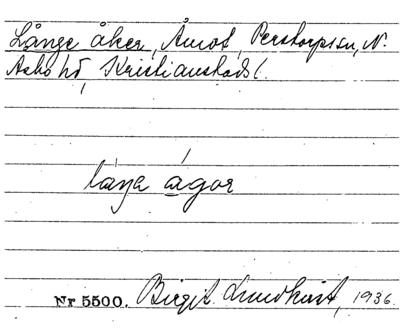 Långe åker, Åmot, Perstorps sn, N.
Åsbo hd, Kristianstads l.
låŋa ágor
Nr 5500. Birgit Lundkvist, 1936.